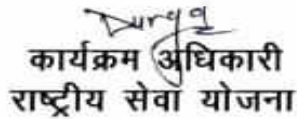 Durga
कार्यक्रम अधिकारी
राष्ट्रीय सेवा योजना